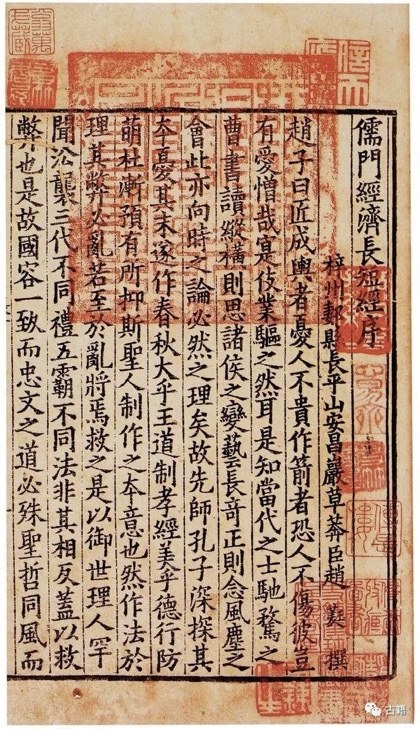 儒門經濟長短經序
梓州郪縣長平山安昌巖草莽臣趙蕤撰
趙子曰匠成輿者憂人不貴作箭者恐人不傷彼豈
有愛憎哉寔伎業驅之然耳是知當代之士馳騖之
曹書讀縱橫則思諸侯之變藝長奇正則念風塵之
會此亦向時之論必然之理矣故先師孔子深探其
夲憂其末遂作春秋大乎王道制孝經美乎德行防
萌杜漸預有所抑斯聖人制作之夲意也然作法於
理其弊必亂若至於亂將焉救之是以御世理人罕
聞沿襲三代不同禮五霸不同法非其相反蓋以救
弊也是故國容一致而忠文之道必殊聖哲同風而
古籍